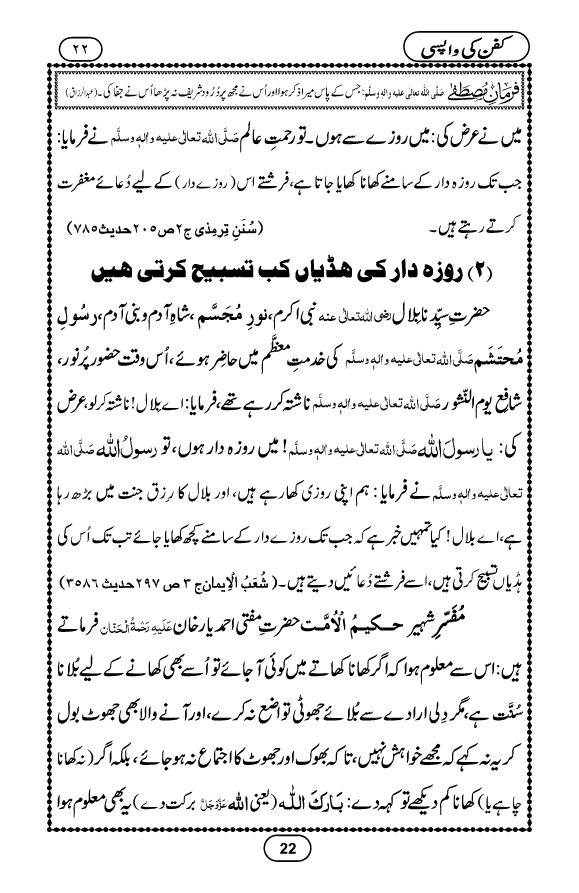 کفن کی واپسی
۲۲
فرمانِ مصطفٰے صَلَّی اللہ تعالٰی علیہ واٰلہٖ وسلَّم: جس کے پاس میرا ذکر ہوا اور اُس نے مجھ پر دُرُود شریف نہ پڑھا اُس نے جفا کی۔ (عبدالرزاق)
میں نے عرض کی: میں روزے سے ہوں۔ تو رحمتِ عالم صَلَّی اللہ تعالٰی علیہ واٰلہٖ وسلَّم نے فرمایا:
جب تک روزہ دار کے سامنے کھانا کھایا جاتا ہے، فرشتے اس (روزے دار) کے لیے دُعائے مغفرت
کرتے رہتے ہیں۔ (سُنَنِ تِرمِذی ج۲ ص۲۰۵ حدیث ۷۸۵)
(۲) روزہ دار کی ھڈیاں کب تسبیح کرتی ھیں
حضرتِ سیِّدنا بِلال رضی اللہ تعالٰی عنہ نبی اکرم، نورِ مُجَسَّم، شاہِ آدم و بنی آدم، رسُولِ
مُحتَشَم صَلَّی اللہ تعالٰی علیہ واٰلہٖ وسلَّم کی خدمتِ معظَّم میں حاضِر ہوئے، اُس وقت حضور پُرنور،
شافِعِ یومُ النُّشُور صَلَّی اللہ تعالٰی علیہ واٰلہٖ وسلَّم ناشتہ کر رہے تھے، فرمایا: اے بِلال! ناشتہ کر لو، عرض
کی: یارسولَ اللہ صَلَّی اللہ تعالٰی علیہ واٰلہٖ وسلَّم! میں روزہ دار ہوں، تو رسولُ اللہ صَلَّی اللہ
تعالٰی علیہ واٰلہٖ وسلَّم نے فرمایا: ہم اپنی روزی کھا رہے ہیں، اور بلال کا رِزق جنت میں بڑھ رہا
ہے، اے بلال! کیا تمہیں خبر ہے کہ جب تک روزے دار کے سامنے کچھ کھایا جائے تب تک اُس کی
ہڈیاں تسبیح کرتی ہیں، اسے فرشتے دُعائیں دیتے ہیں۔ (شُعَبُ الْاِیمان ج ۳ ص ۲۹۷ حدیث ۳۵۸۶)
مُفَسِّرِ شہیر حکیمُ الْاُمَّت حضرتِ مفتی احمد یار خان عَلَیْہِ رَحْمَۃُ الْحَنَّان فرماتے
ہیں: اس سے معلوم ہوا کہ اگر کھانا کھاتے میں کوئی آ جائے تو اُسے بھی کھانے کے لیے بُلانا
سُنَّت ہے، مگر دِلی ارادے سے بُلائے جھوٹی تواضع نہ کرے، اور آنے والا بھی جھوٹ بول
کر یہ نہ کہے کہ مجھے خواہش نہیں، تاکہ بھوک اور جھوٹ کا اجتماع نہ ہو جائے، بلکہ اگر (نہ کھانا
چاہے یا) کھانا کم دیکھے تو کہہ دے: بَارَکَ اللہ (یعنی اللہ عَزَّوَجَلَّ برکت دے) یہ بھی معلوم ہوا
22